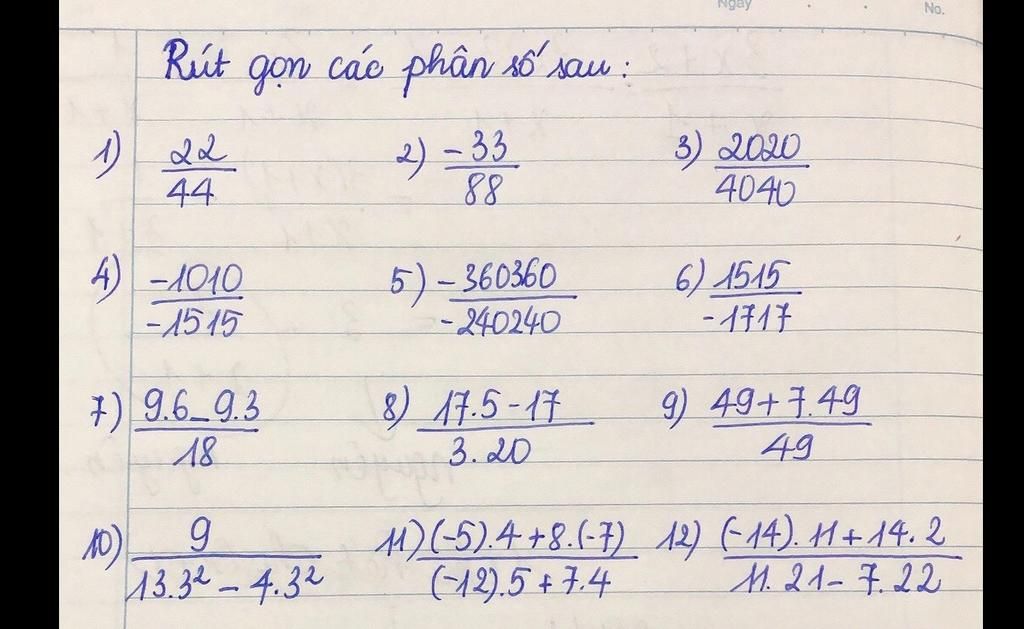 Ngày . . No.
Rút gọn các phân số sau :
1) 22/44 2) -33/88 3) 2020/4040
4) -1010/-1515 5) -360360/-240240 6) 1515/-1717
7) 9.6-9.3/18 8) 17.5-17/3.20 9) 49+7.49/49
10) 9/13.3²-4.3² 11) (-5).4+8.(-7)/(-12).5+7.4 12) (-14).11+14.2/11.21-7.22